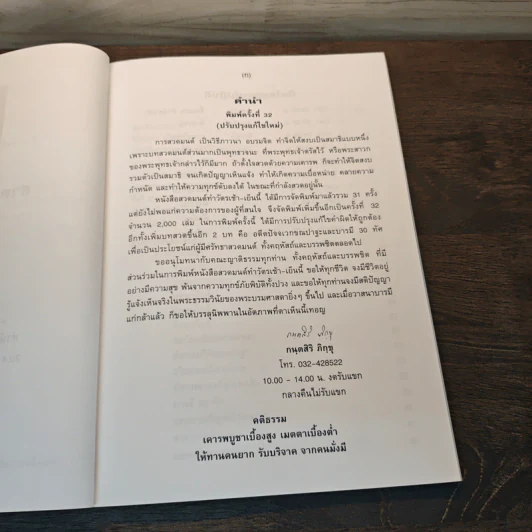 (ก)
คำนำ
พิมพ์ครั้งที่ 32
(ปรับปรุงแก้ไขใหม่)
การสวดมนต์ เป็นวิธีภาวนา อบรมจิต ทำจิตให้สงบเป็นสมาธิแบบหนึ่ง
เพราะบทสวดมนต์ส่วนมากเป็นพุทธวจนะ ที่พระพุทธเจ้าตรัสไว้ หรือพระสาวก
ของพระพุทธเจ้ากล่าวไว้ก็มีมาก ถ้าตั้งใจสวดด้วยความเคารพ ก็จะทำให้จิตสงบ
รวมตัวเป็นสมาธิ จนเกิดปัญญาเห็นแจ้ง ทำให้เกิดความเบื่อหน่าย คลายความ
กำหนัด และทำให้ความทุกข์ดับลงได้ ในขณะที่กำลังสวดอยู่นั้น
หนังสือสวดมนต์ทำวัตรเช้า-เย็นนี้ ได้มีการจัดพิมพ์มาแล้วรวม 31 ครั้ง
แต่ยังไม่พอแก่ความต้องการของผู้ที่สนใจ จึงจัดพิมพ์เพิ่มขึ้นอีกเป็นครั้งที่ 32
จำนวน 2,000 เล่ม ในการพิมพ์ครั้งนี้ ได้มีการปรับปรุงแก้ไขคำผิดให้ถูกต้อง
อีกทั้งเพิ่มบทสวดขึ้นอีก 2 บท คือ อตีตปัจจเวกขณปาฐะและบารมี 30 ทัศ
เพื่อเป็นประโยชน์แก่ผู้มีศรัทธาสวดมนต์ ทั้งคฤหัสถ์และบรรพชิตตลอดไป
ขออนุโมทนากับคณะญาติธรรมทุกท่าน ทั้งคฤหัสถ์และบรรพชิต ที่มี
ส่วนร่วมในการพิมพ์หนังสือสวดมนต์ทำวัตรเช้า-เย็นนี้ ขอให้ทุกชีวิต จงมีชีวิตอยู่
อย่างมีความสุข พ้นจากความทุกข์ภัยพิบัติทั้งปวง และขอให้ทุกท่านจงมีสติปัญญา
รู้แจ้งเห็นจริงในพระธรรมวินัยของพระบรมศาสดายิ่งๆ ขึ้นไป และเมื่อวาสนาบารมี
แก่กล้าแล้ว ก็ขอให้บรรลุนิพพานในอัตภาพที่ตาเห็นนี้เทอญ
กนฺตสิริ ภิกฺขุ
กนฺตสิริ ภิกฺขุ
โทร. 032-428522
10.00 - 14.00 น. งดรับแขก
กลางคืนไม่รับแขก
คติธรรม
เคารพบูชาเบื้องสูง เมตตาเบื้องต่ำ
ให้ทานคนยาก รับบริจาค จากคนมั่งมี